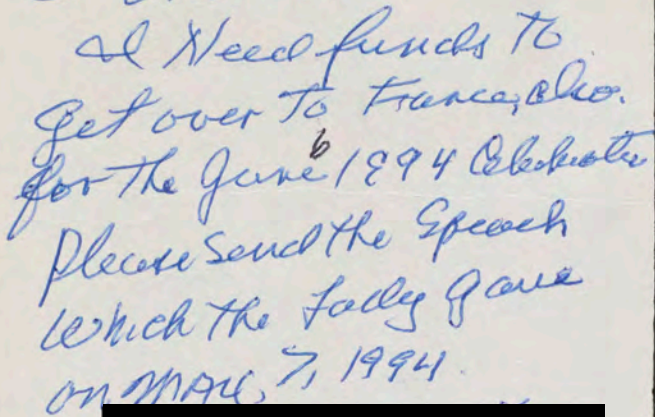 I Need funds to
get over To France, also.
for The June 6 1994 Celebration
please send the Speech
which the Lady gave
on MAY, 7, 1994.